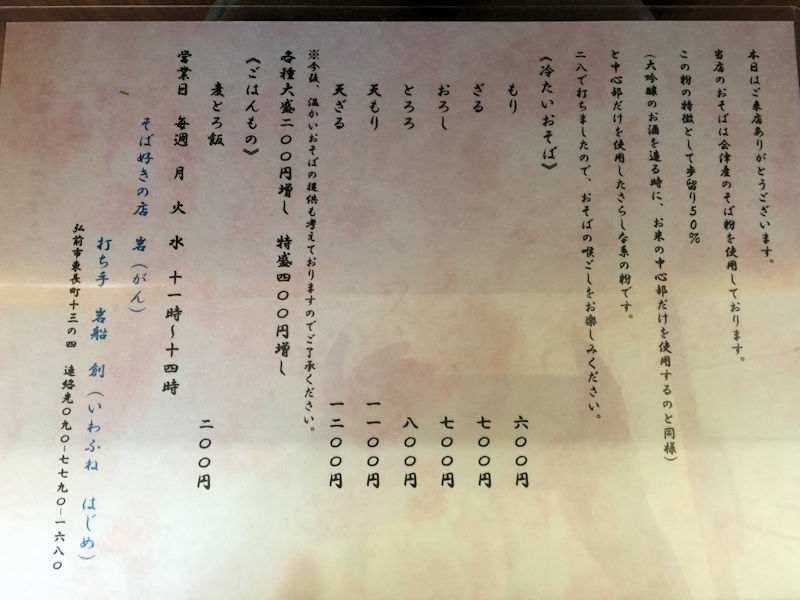 本日はご来店ありがとうございます。
当店のおそばは会津産のそば粉を使用しております。
この粉の特徴として歩留り50%
(大吟醸のお酒を造る時に、お米の中心部だけを使用するのと同様)
と中心部だけを使用したさらしな系の粉です。
二八で打ちましたので、おそばの喉ごしをお楽しみください。
《冷たいおそば》
もり 六〇〇円
ざる 七〇〇円
おろし 七〇〇円
とろろ 八〇〇円
天もり 一一〇〇円
天ざる 一二〇〇円
※今後、温かいおそばの提供も考えておりますのでご了承ください。
各種大盛二〇〇円増し 特盛四〇〇円増し
《ごはんもの》
麦とろ飯 二〇〇円
営業日 毎週 月 火 水 十一時～十四時
そば好きの店 岩(がん)
打ち手 岩船 創(いわふね はじめ)
弘前市東長町十三の四 連絡先〇九〇-七七九〇-一六八〇